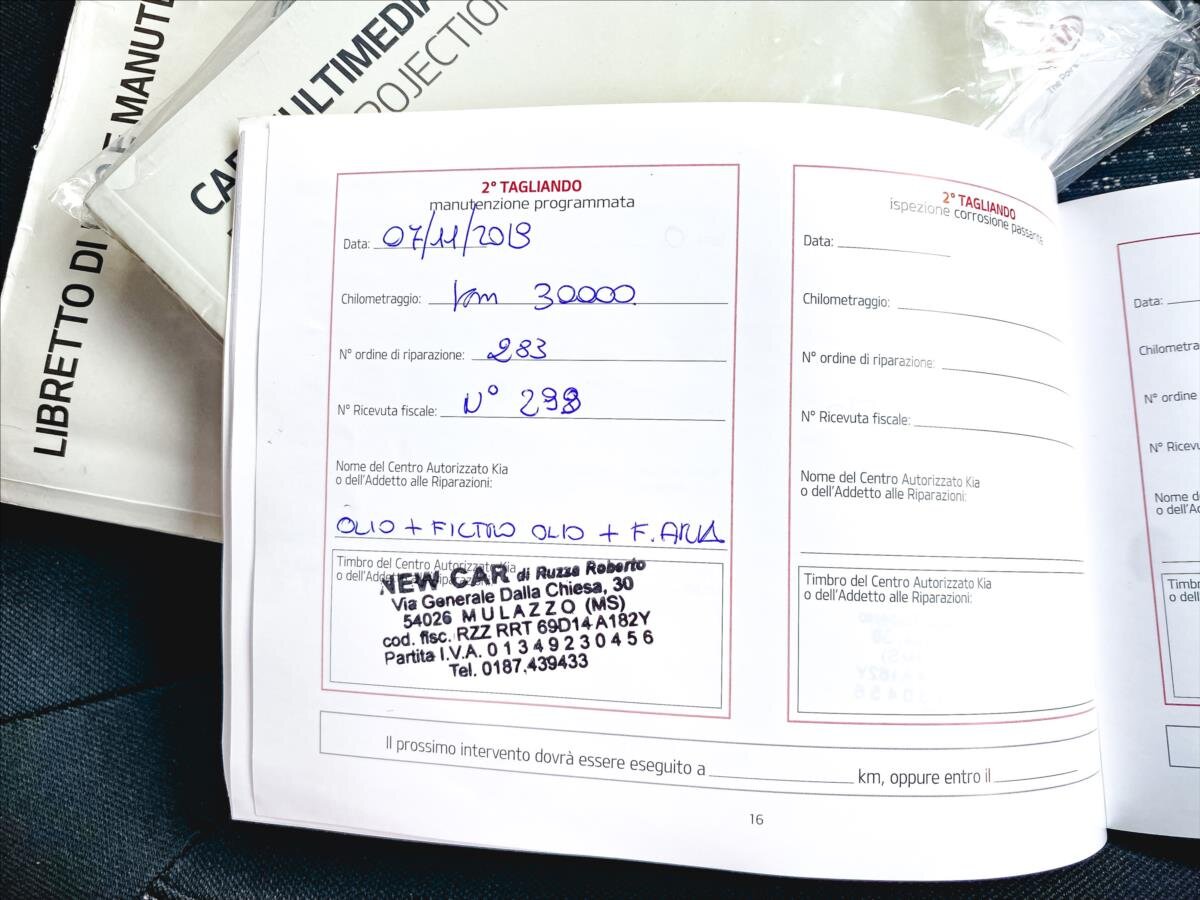 LIBRETTO DI
E MANUTE
CAR
ULTIMEDIA
PROJECTION
KIA
The Pow
2° TAGLIANDO
manutenzione programmata
Data: 07/11/2019
Chilometraggio: km 30000
N° ordine di riparazione: 283
N° Ricevuta fiscale: N° 298
Nome del Centro Autorizzato Kia
o dell'Addetto alle Riparazioni:
OLIO + FILTRO OLIO + F. ARIA
Timbro del Centro Autorizzato Kia
o dell'Addetto alle Riparazioni:
NEW CAR di Ruzze Roberto
Via Generale Dalla Chiesa, 30
54026 MULAZZO (MS)
cod. fisc. RZZ RRT 69D14 A182Y
Partita I.V.A. 0 1 3 4 9 2 3 0 4 5 6
Tel. 0187.439433
2° TAGLIANDO
ispezione corrosione passante
Data:
Chilometraggio:
N° ordine di riparazione:
N° Ricevuta fiscale:
Nome del Centro Autorizzato Kia
o dell'Addetto alle Riparazioni:
Timbro del Centro Autorizzato Kia
o dell'Addetto alle Riparazioni:
Il prossimo intervento dovrà essere eseguito a km, oppure entro il
16
Data:
Chilometra
N° ordine
N° Ricevu
Nome d
o dell'Ad
Timb
o del